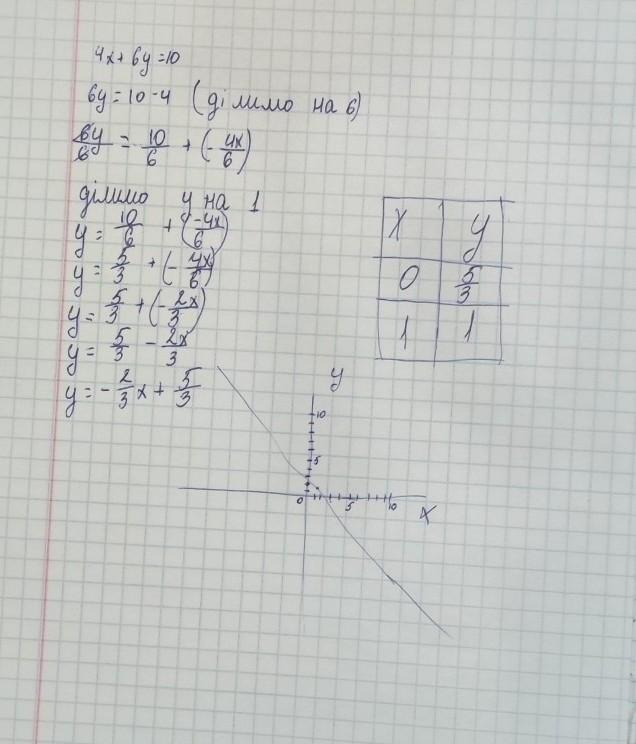 4x + 6y = 10
6y = 10 - 4 (ділимо на 6)
6y/6 = 10/6 + (-4x/6)
ділимо y на 1
y = 10/6 + (-4x/6)
y = 5/3 + (-4x/6)
y = 5/3 + (-2x/3)
y = 5/3 - 2x/3
y = -2/3x + 5/3
x y
0 5/3
1 1
y
10
5
0 5 10 x